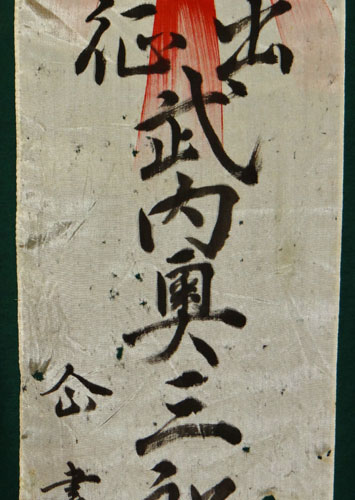 出征
武内奥三郎
仚書